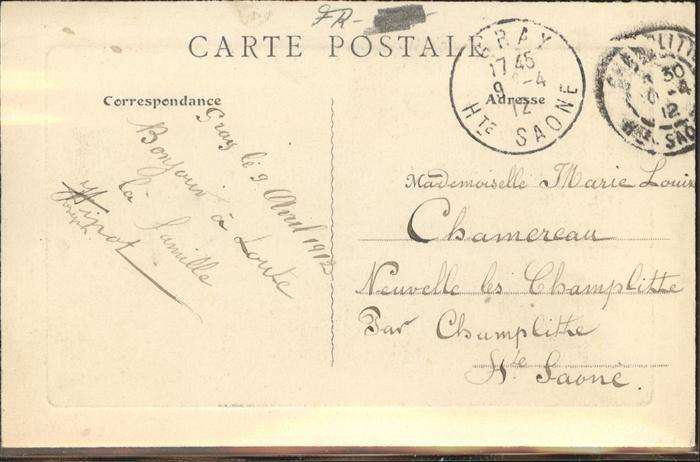 FR-
CARTE POSTALE
Correspondance
Gray le 9 Avril 1912
Bonjour à Toute
la Famille
GRAY
17 45
9 - 4
12
Hte SAONE
30
12
Adresse
Mademoiselle Marie Louise
Chamereau
Neuvelle les Champlitte
Par Champlitte
Hte Saone.